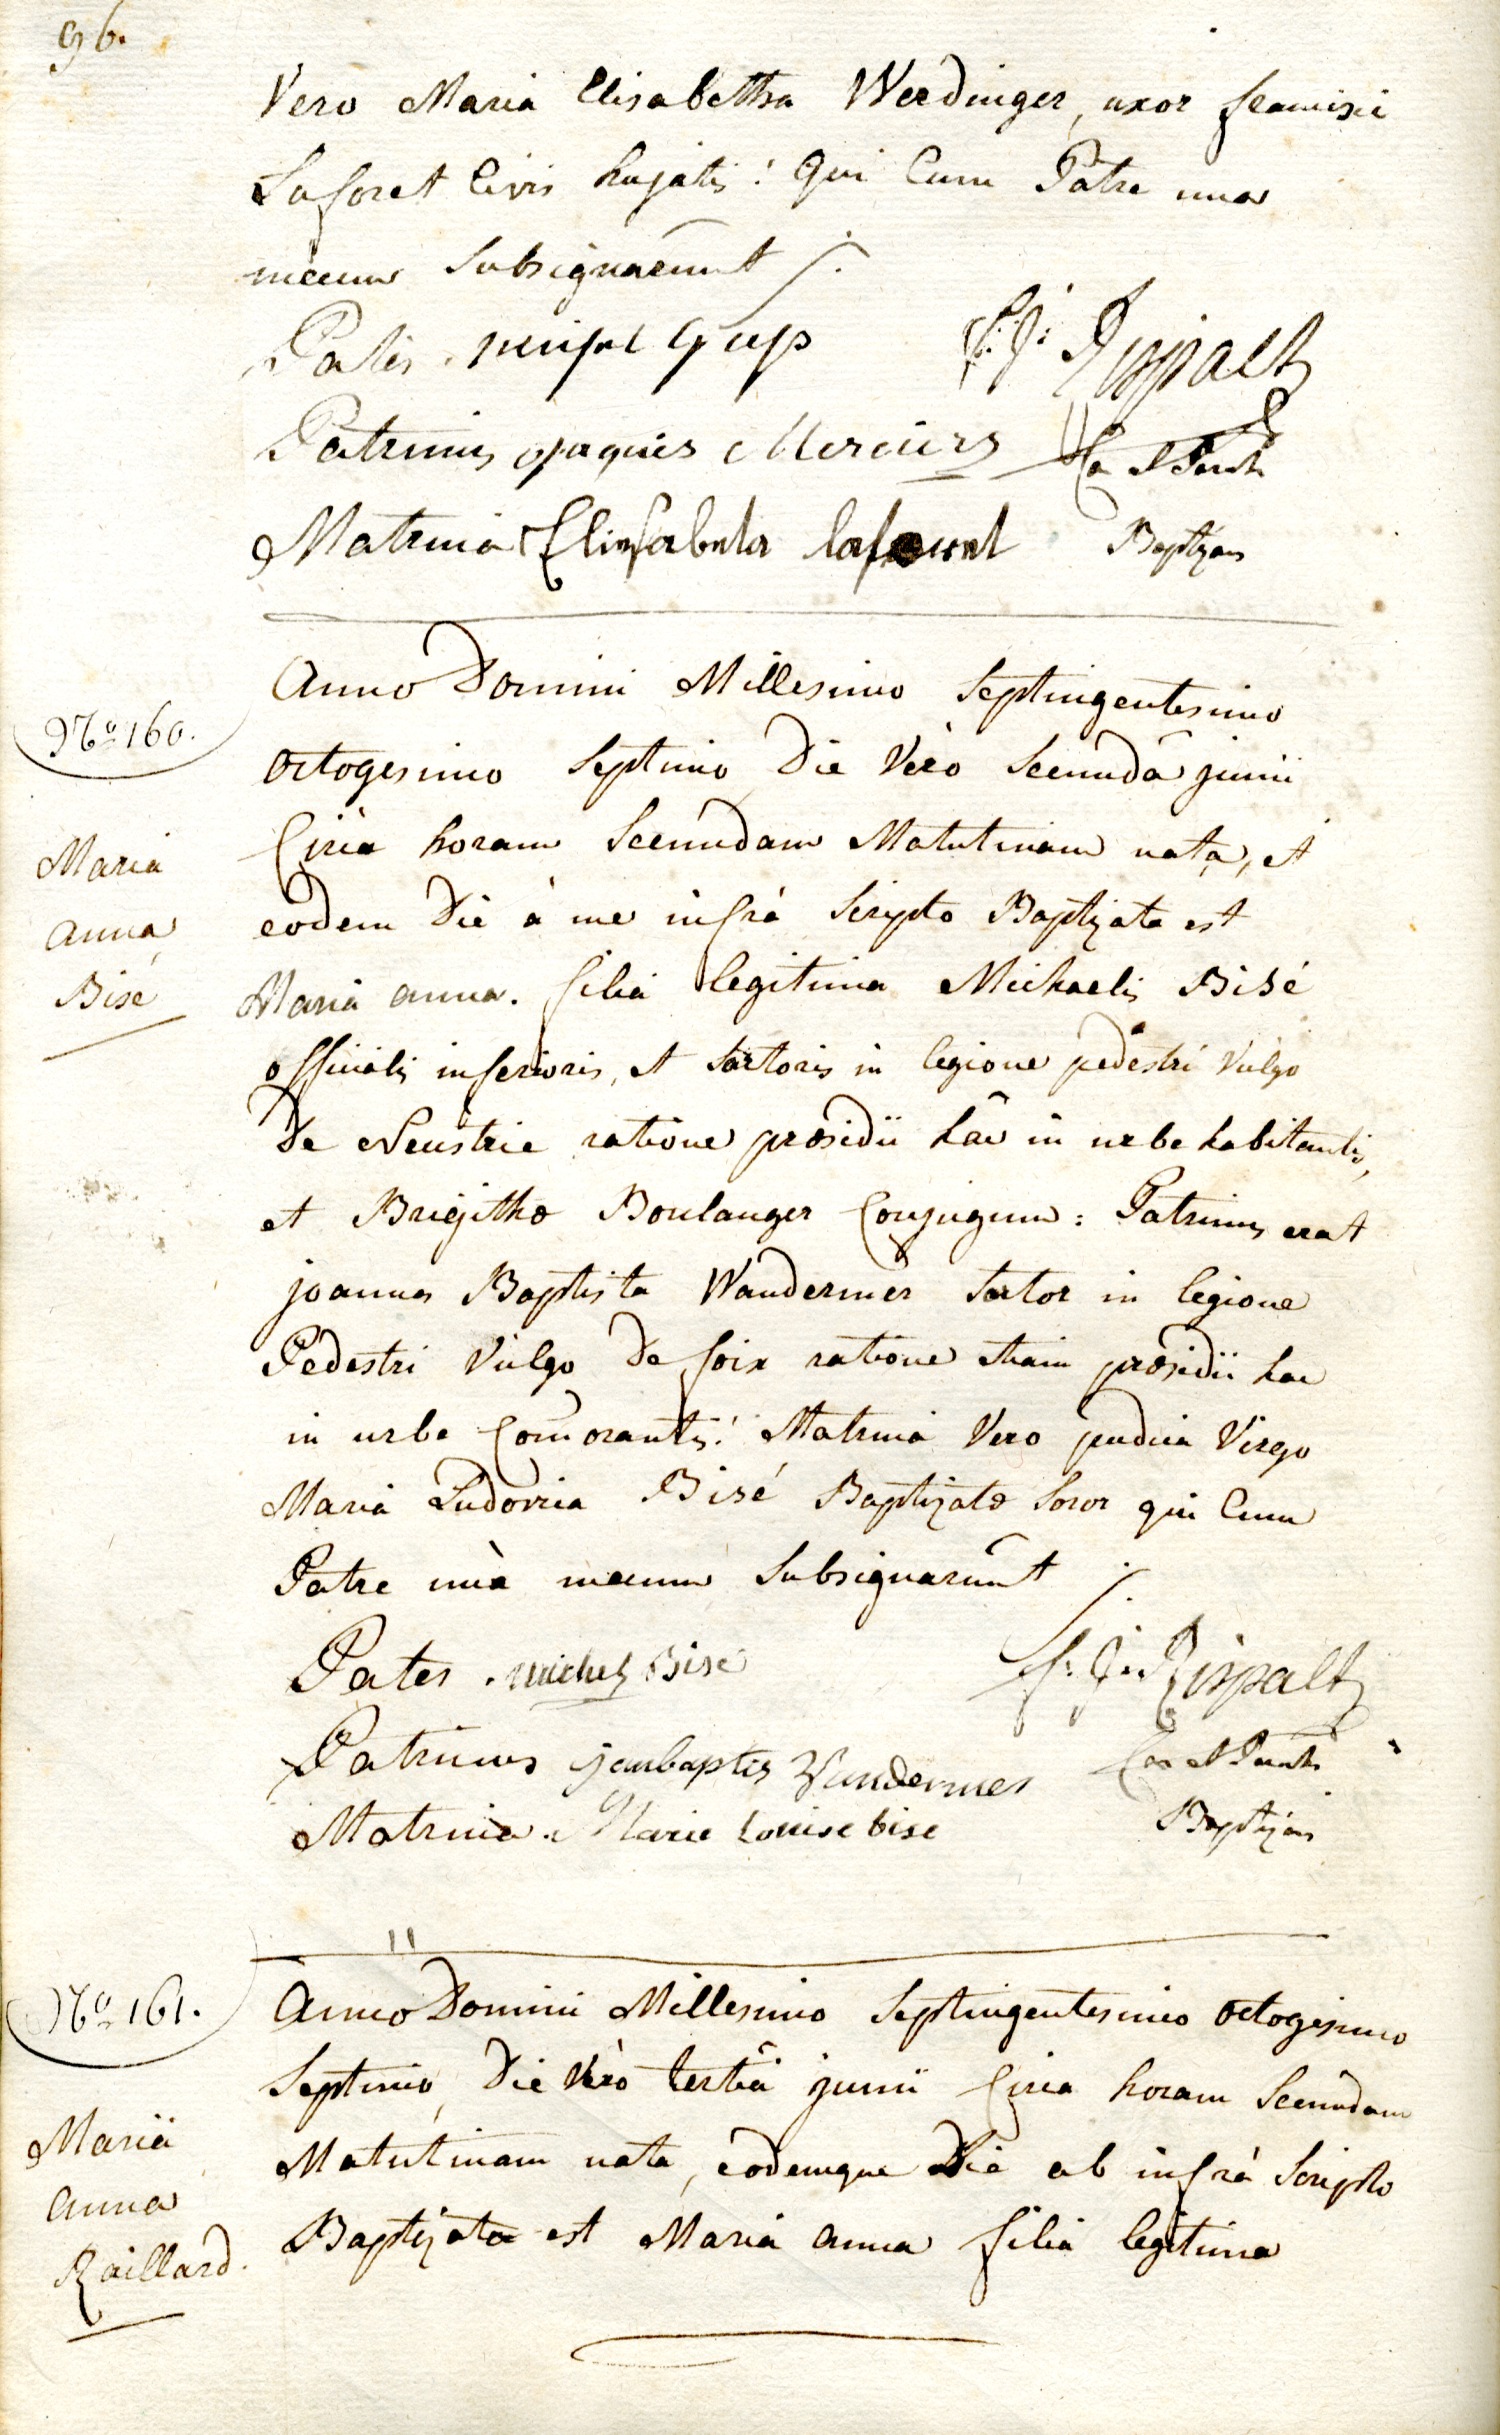 96.
Vero Maria Elisabetha Werdinger, uxor francisci
Laforet Civis hujatis: Qui Cum Patre una
mecum Subsignarunt /.
Pater.
Patrinus Jaques Mercier
Matrina Elisabeta laforet Baptizans
Nº 160.
Maria
anna
Bisé
Anno Domini Millesimo Septingentesimo
octogesimo Septimo Die Vero Secunda junii
Circa horam Secundam Matutinam nata, et
eodem Die à me infrà Scripto Baptizata est
Maria anna. filia legitima Michaelis Bisé
officialis inferioris, et Sartoris in legione pedestri Vulgo
De Neustrie ratione præsidii hâc in urbe habitantis,
et Brigithæ Boulanger Conjugum: Patrinus erat
joannes Baptista Wandermer Sartor in legione
Pedestri Vulgo De foix ratione etiam præsidii hac
in urbe Comorantis: Matrina Vero pudica Virgo
Maria Ludovica Bisé Baptizatæ Soror qui Cum
Patre unà mecum Subsignarunt /.
Pater. michel Bise
Patrinus janbaptis Vandermer
Matrina. Marie Louise bise
Baptizans
Nº 161.
Maria
anna
Raillard.
Anno Domini Millesimo Septingentesimo octogesimo
Septimo, Die Vero tertiâ junii Circa horam Secundam
Matutinam nata, eodemque Die ab infrà Scripto
Baptizata est Maria anna filia legitima